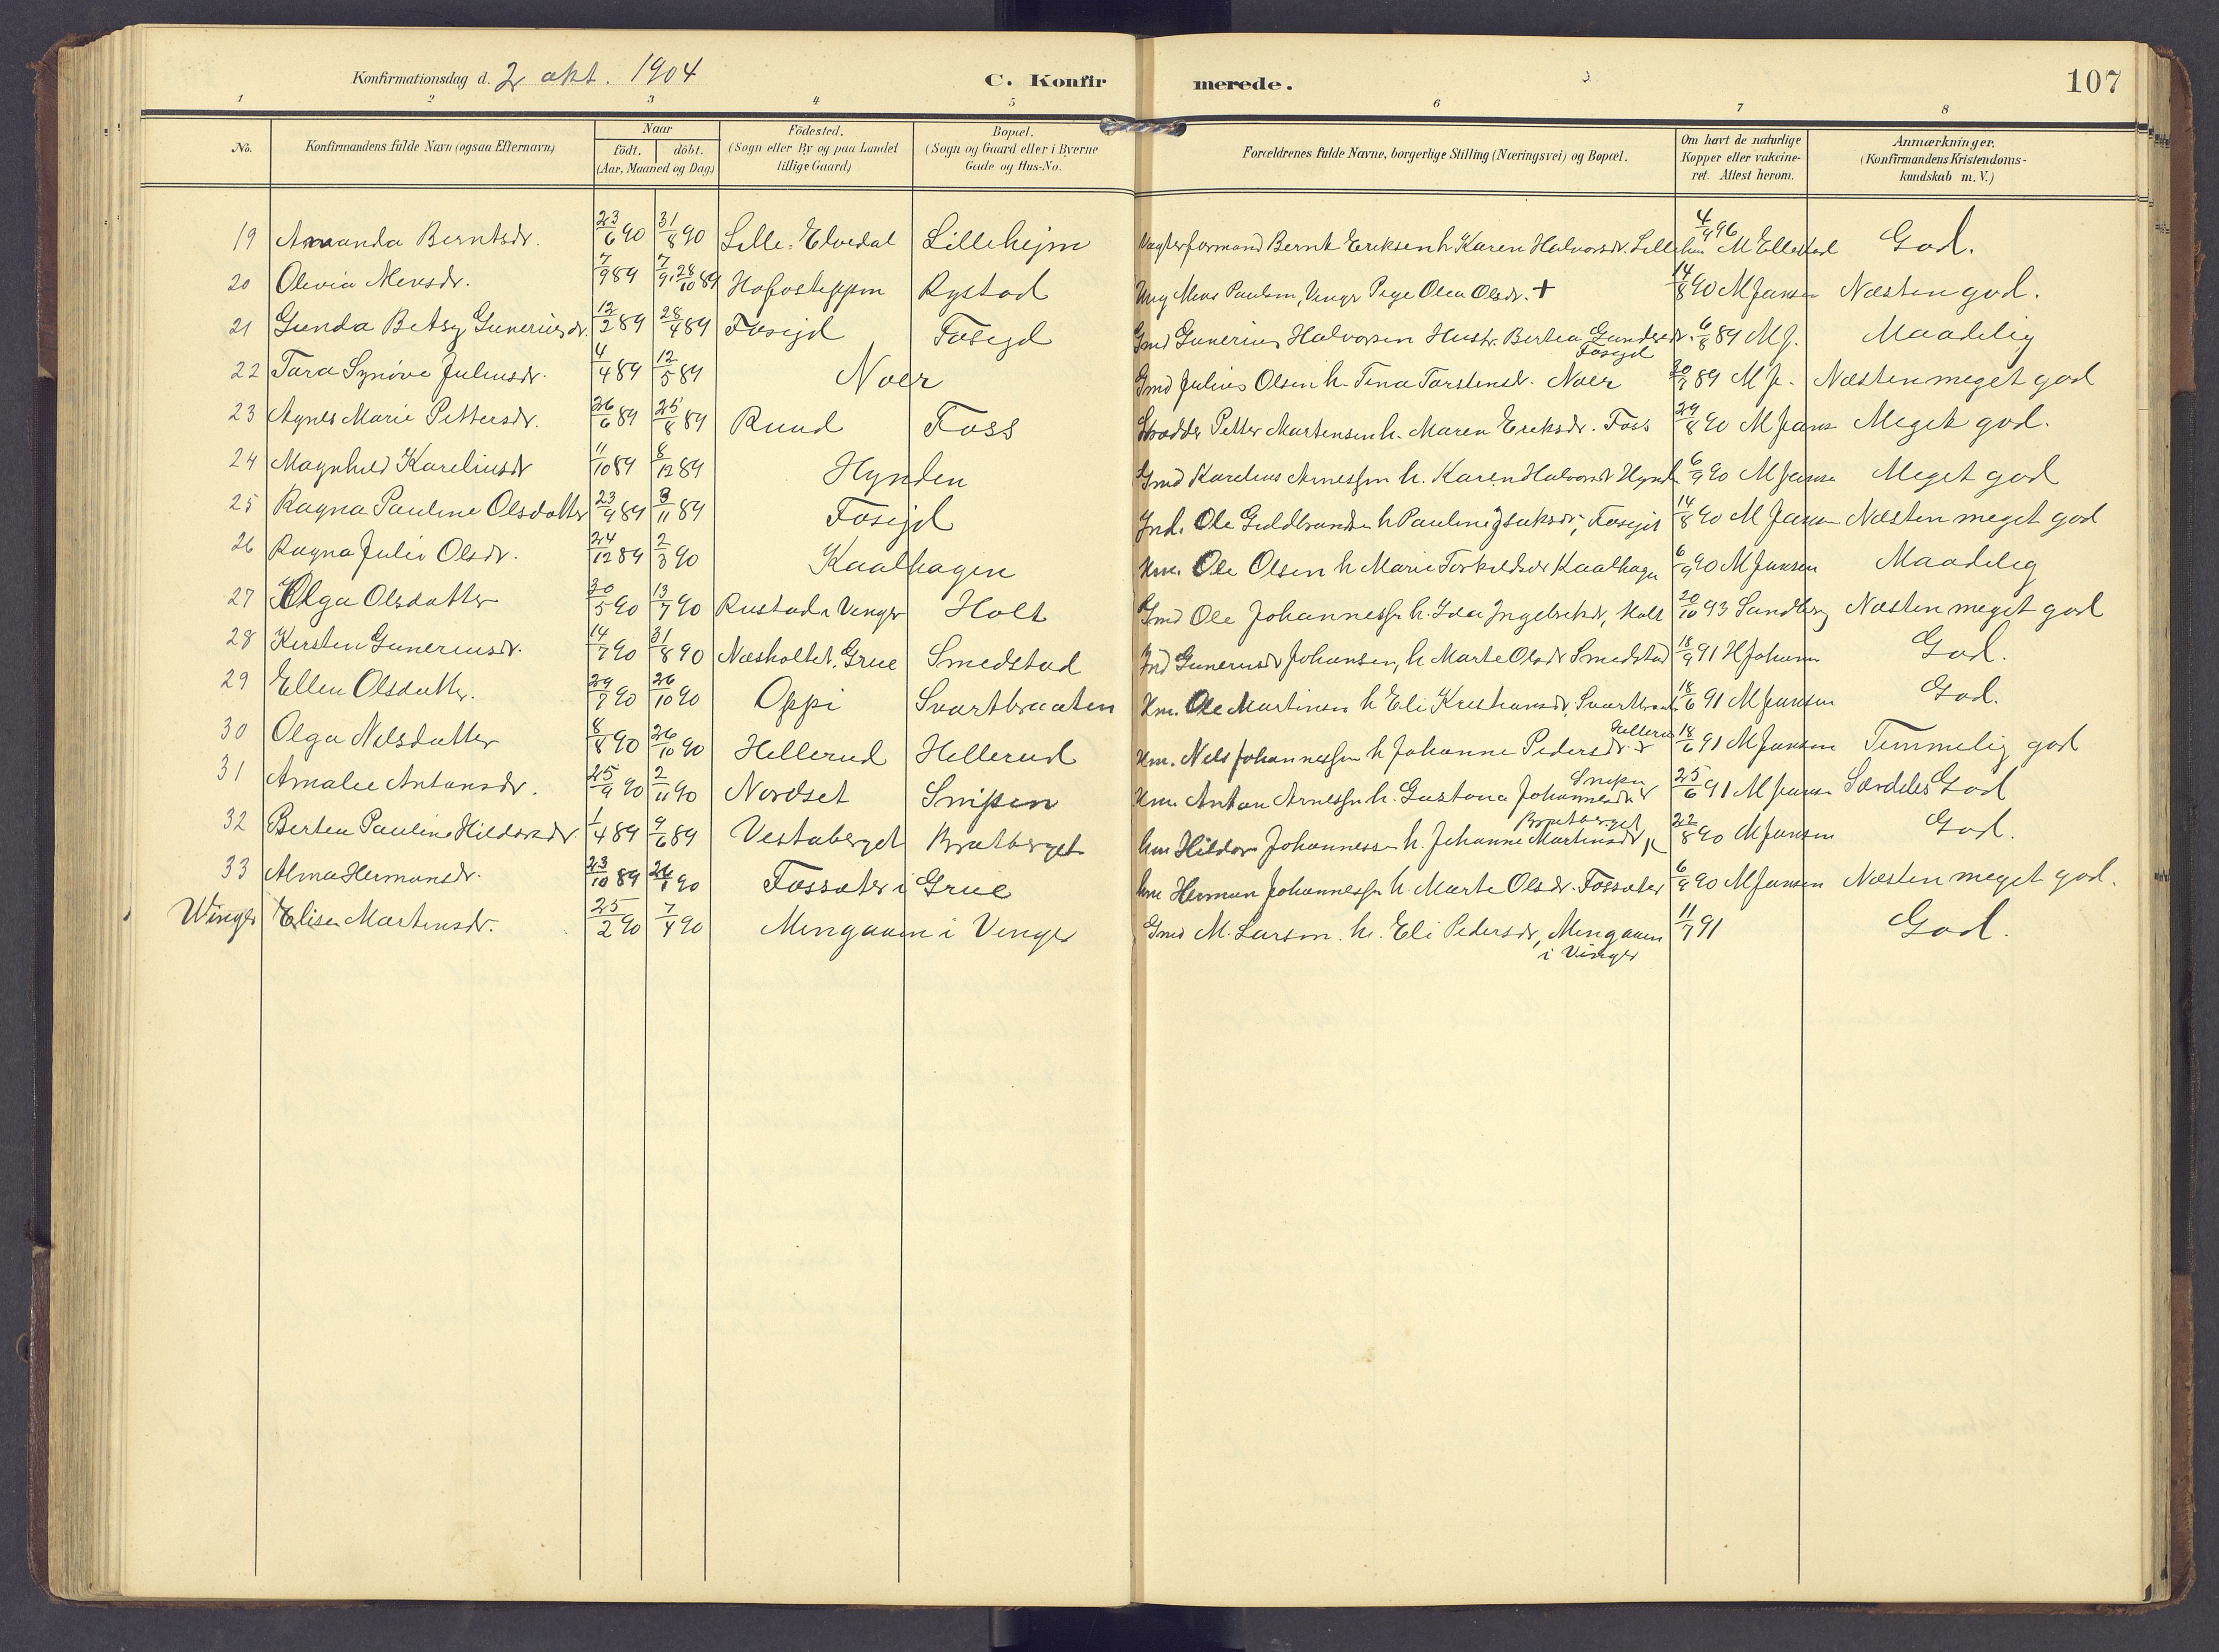 Konfirmationsdag d. 2 okt. 1904
C. Konfirmerede.
107
1 2 3 4 5 6 7 8
No. Konfirmandens fulde Navn (ogsaa Efternavn) Naar født. døbt. (Aar, Maaned og Dag) Fødested. (Sogn eller By og paa Landet tillige Gaard) Bopæl. (Sogn og Gaard eller i Byerne Gade og Hus-No. Forældrenes fulde Navne, borgerlige Stilling (Næringsvei) og Bopæl. Om havt de naturlige Kopper eller vakcineret. Attest herom. Anmærkninger. (Konfirmandens Kristendomskundskab m. V.)
19 Amanda Berntsdr. 23/6 90 31/8 90 Lille-Elvedal Lillehejm Vogterformand Bernt Eriksen h. Karen Halvorsdr. 4/9 96 M Ellestad God.
20 Olivia Mensdr. 7/9 89 28/10 89 Rystad Ung Mens Paulsen, Pige Olea Olsdr. + 14/8 90 M Jansen Næsten god.
21 Gunda Betsy Guneriusdr. 12/2 89 28/4 89 Fosejd Fosejd Gmd Gunerius Halvorsen Hustr. Bertea Gundersdr. Fosejd 6/8 89 M J. Maadelig
22 Tora Synöve Juliusdr. 4/4 89 12/5 89 Noer Gmd Julius Olsen h. Tina Torstensdr. Noer 20/7 89 M J. Næsten meget god
23 Agnes Marie Pettersdr. 26/6 89 25/8 89 Ruud Foss Skrædder Petter Martensen h. Maren Eriksdr. Foss 29/8 90 M Jans Meget god.
24 Magnhild Kareliusdr 11/10 89 8/12 89 Hynden Gmd Karelius Arnessen h. Karen Halvorsdr Hynd 6/9 90 M Jansen Meget god
25 Ragna Pauline Olsdatter 23/9 89 3/11 89 Fosejd Ind. Ole Guldbrandsen h Pauline Isaksdr, Fosejd 14/8 90 M Jansen Næsten meget god
26 Ragna Julie Olsdr. 24/12 89 2/3 90 Kaalhagen Hm. Ole Olsen h Marie Torkildsdr Kaalhagn 6/9 90 M Jansen Maadelig
27 Olga Olsdatter 30/5 90 13/7 90 Rustad i Vinger Holt Gmd Ole Johannessen h. Ida Ingebretsdr, Holt 20/10 93 Sandberg Næsten meget god
28 Kirsten Guneriusdr. 14/7 90 31/8 90 Næsholtet, Grue Smedstad Ind Gunerius Johansen, h Marte Olsdr Smedstad 18/9 91 H Johansen God.
29 Ellen Olsdatter. 29/7 90 26/10 90 Oppi Svartbraaten Hm. Ole Martinsen h Eli Kristiansdr, Svartbraaten 18/6 91 M Jansen God.
30 Olga Nilsdatter 8/8 90 26/10 90 Hellerud Hellerud Hm. Nils Johannessen h Johanne Pedersdr. Hellerud 18/6 91 M Jansen Temmelig god
31 Amalie Antonsdr. 25/9 90 2/11 90 Nordset Snipen Hm Anton Arnessen h. Gustava Johannesdr Snipen 25/6 91 M Jansen Særdeles God
32 Bertea Pauline Hildorsdr. 1/4 89 9/6 89 Vestaberget Bratberget hm Hildor Johannessen h. Johanne Martinsdr, Bratberget 22/8 90 M Jansen God.
33 Alma Hermansdr. 23/10 89 26/1 90 Fossæter i Grue hm Herman Johannessen h. Marte Olsdr. Fossæter 6/9 90 M Jansen Næsten meget god.
Winger Elise Martinsdr. 25/2 90 7/4 90 Mengaaen i Vinger Gmd M. Larsen. h. Eli Pedersdr, Mengaaen i Vinger 11/7 91 God.